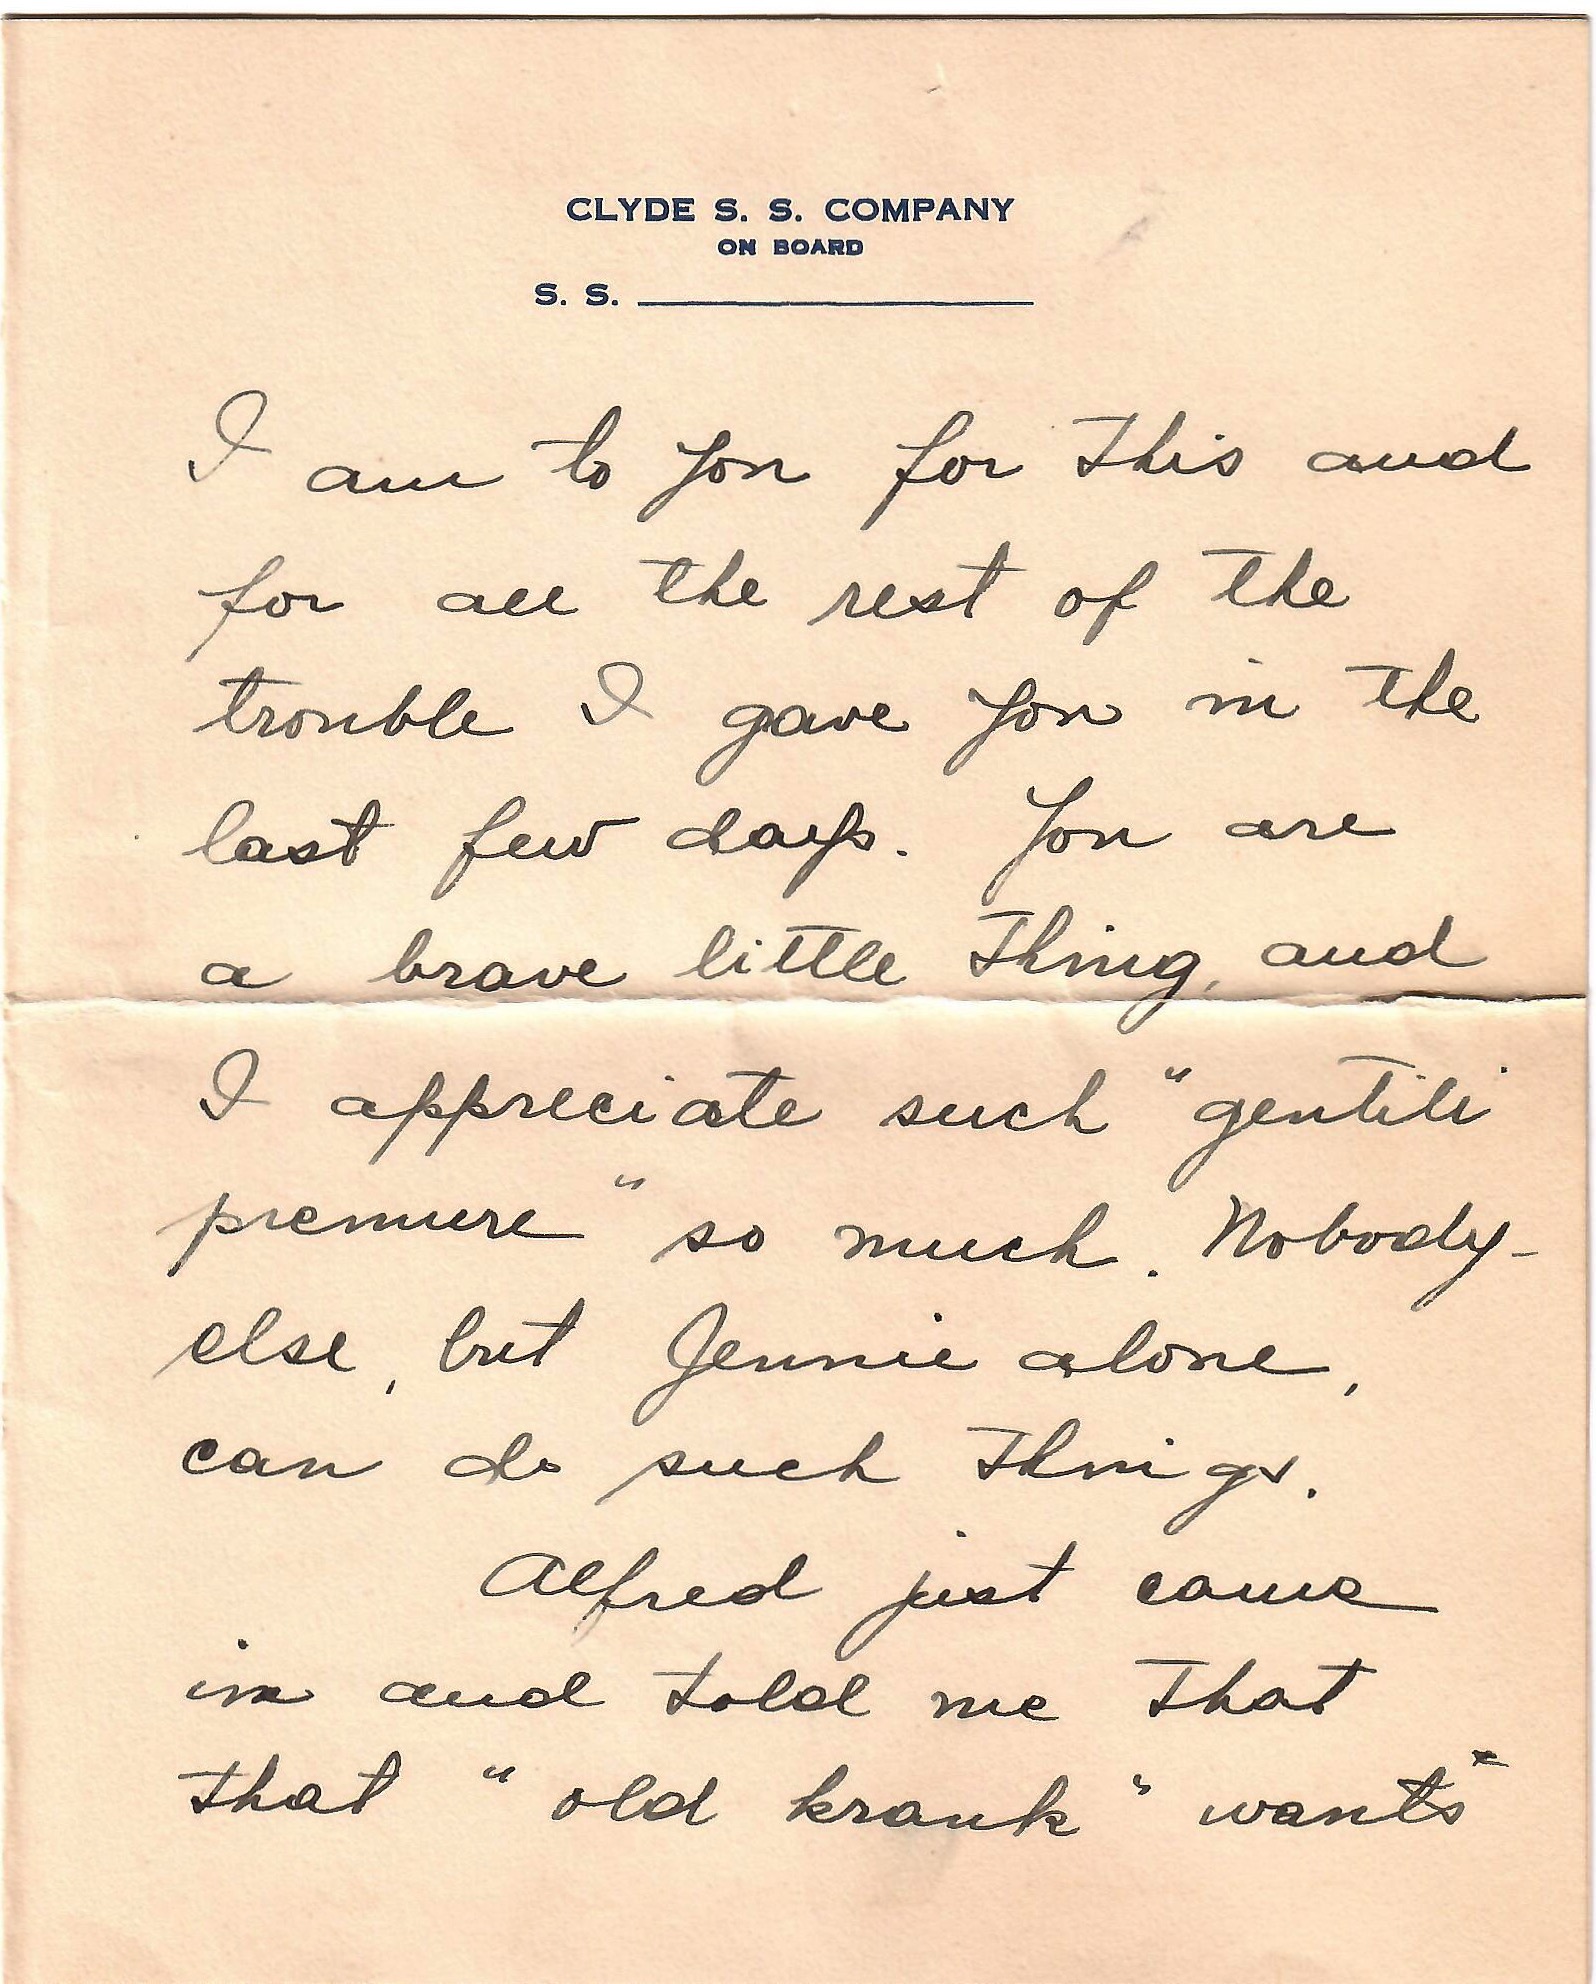 CLYDE S. S. COMPANY
ON BOARD
S. S.
I am to you for this and
for all the rest of the
trouble I gave you in the
last few days. You are
a brave little thing, and
I appreciate such "gentili
premure" so much. Nobody-
else, but Jennie alone,
can do such things.
Alfred just came
in and told me that
that "old krank" wants